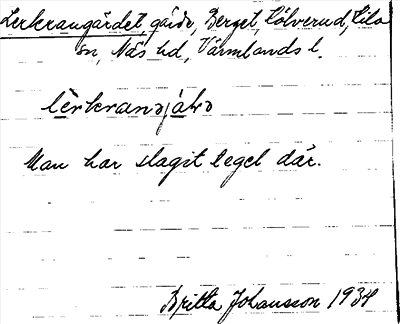 Lerkrangärdet, gärde, Berget, Cölverud, Eila
ön, Näs hd, Värmlands l.
lèrkranɔjálɔ
Man har slagit tegel där.
Britta Johansson 1934